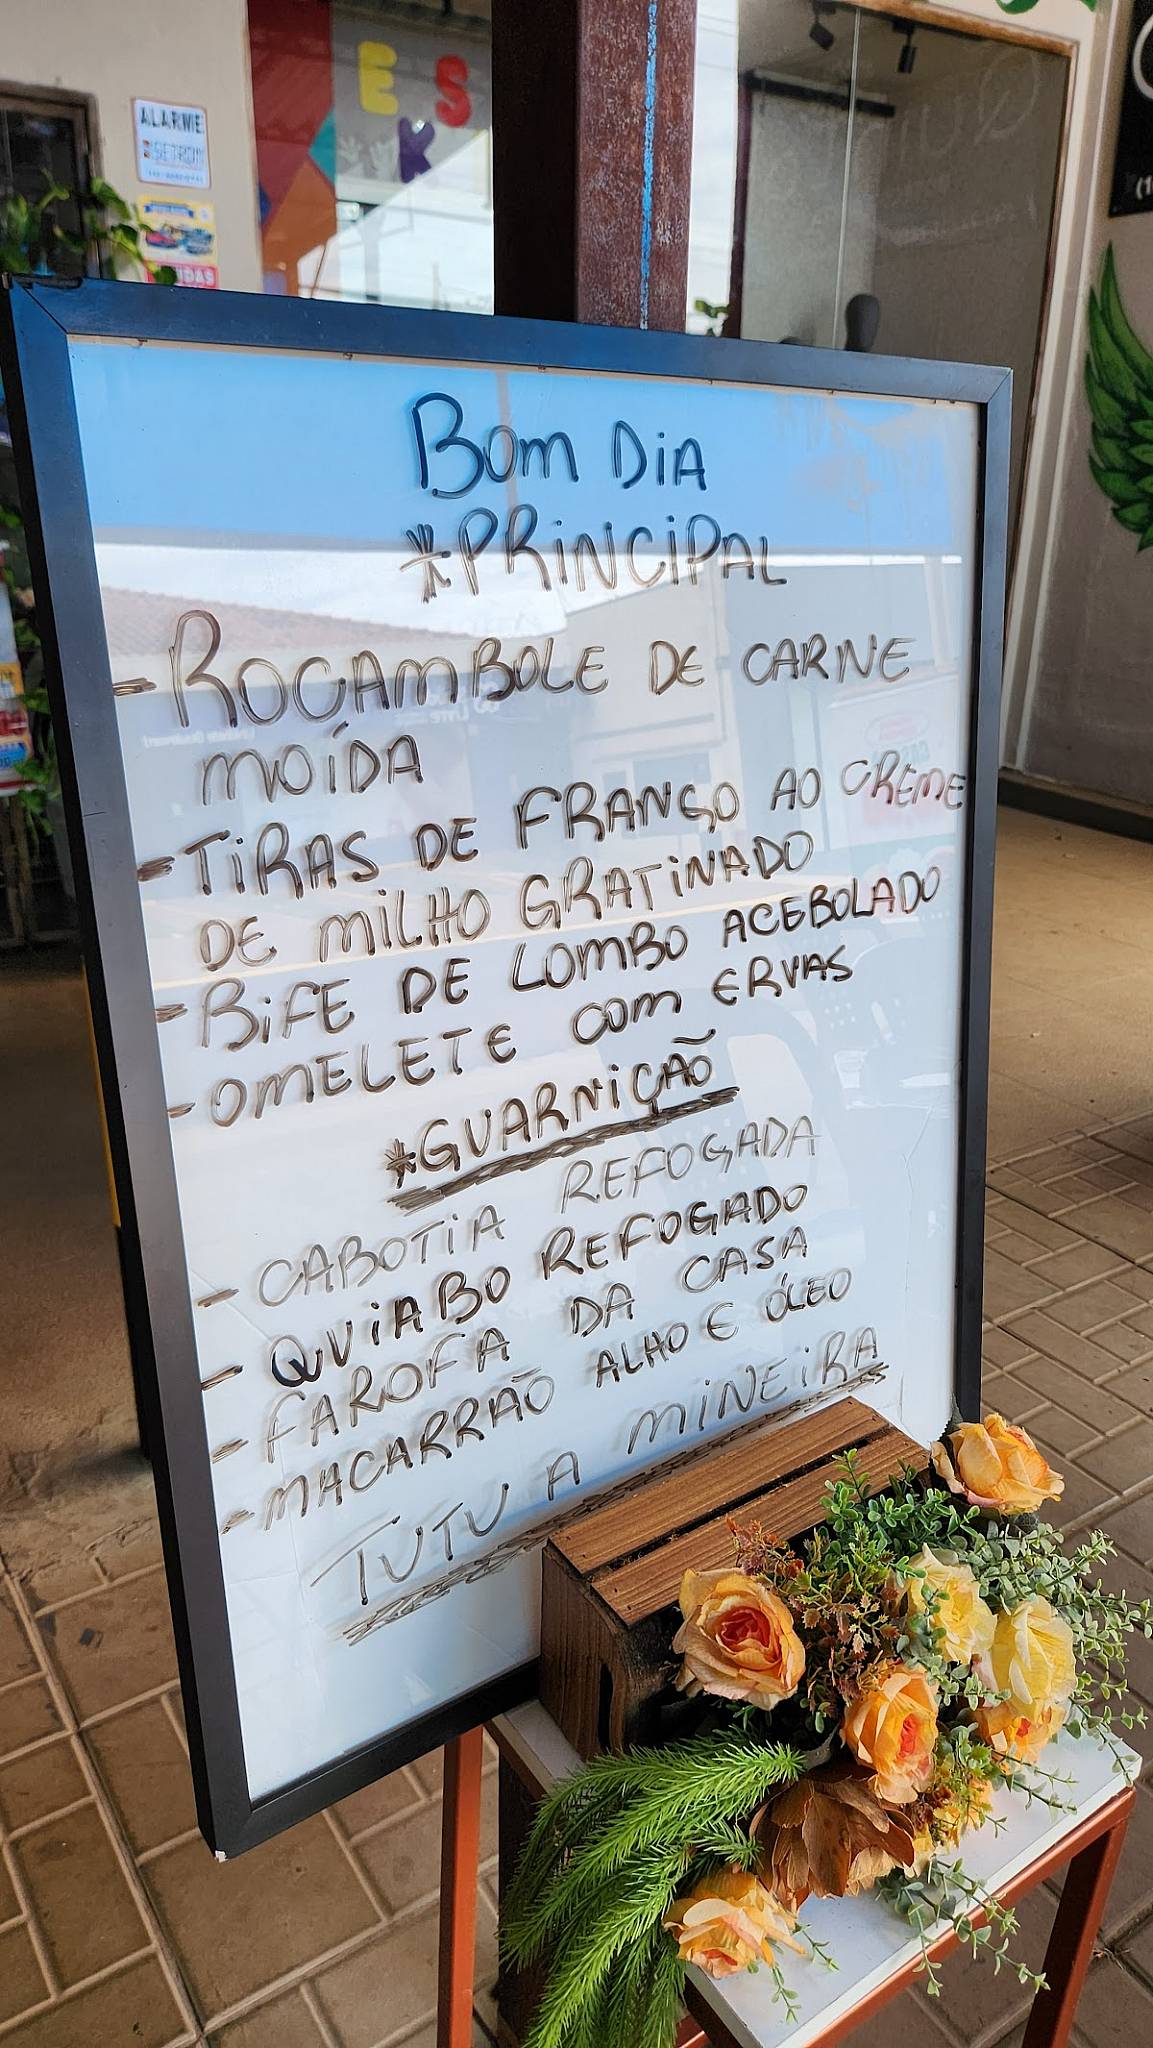 ESK
ALARME
Bom DiA
*PRiNCiPAL
- ROCAMBOLE DE CARNE
MOÍDA
- TiRAS DE FRANGO AO CREME
DE MiLHO GRATiNADO
- BiFE DE LOMBO ACEBOLADO
- OMELETE COM ERVAS
*GUARNiÇÃO
- CABOTiA REFOGADA
- QUiABO REFOGADO
- FAROFA DA CASA
- MACARRÃO ALHO E ÓLEO
TUTU A MiNEiRA